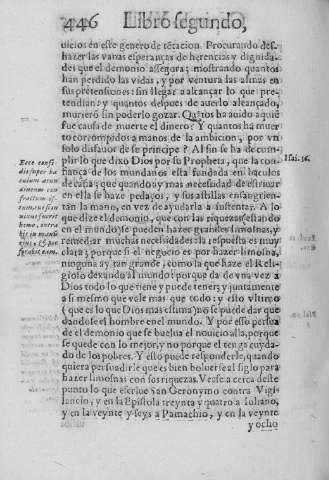 446 Libro segundo,
uicios en este genero de tētacion. Procurando des-
hazer las vanas esperanças de herencias y dignida-
des que el demonio assegura; mostrando quantos
han perdido las vidas, y por ventura las almas en
sus pretensiones: sin llegar a alcançar lo que pre-
tendian? y quantos despues de auerlo alcançado,
murierō sin poderlo gozar. Quātos ha auido aquiē
fue causa de muerte el dinero? Y quantos ha muer-
to corrompidos a manos de la ambicion, por vn
solo disfauor de su principe? Al fin se ha de cum-
plir lo que dixo Dios por su Propheta, que la con-
fiança de los mundanos esta fundada en baculos
de caña; que quando ay mas necessidad de estriuar
en ella se haze pedaços, y sus astillas ensangrien-
tan la mano, en vez de ayudarla a sustentar. A lo
que dize el demonio, que con las riquezas estando
en el mundo se pueden hazer grandes limosnas, y
remediar muchas necessidades: la respuesta es muy
clara; porque si el negocio es por hazer limosna,
ninguna ay tan grande, como la que haze el Reli-
gioso dexando al mundo: porque da de vna vez a
Dios todo lo que tiene y puede tener; y juntamente
a si mesmo que vale mas que todo: y esto vltimo
(que es lo que Dios mas estima) no se puede dar que
dandose el hombre en el mundo. Y por esso persua
de el demonio que se buelua el nouicio alla, porque
se quede con lo mejor, y no porque el tenga cuyda-
do de los pobres. Y esto puede responderle, quando
quiera persuadirle que es bien boluerse al siglo para
hazer limosnas con sus riquezas. Vease a cerca deste
punto lo que escriue San Geronymo contra Vigi-
lancio, y en la Epistola treynta y quatro a Iuliano,
y en la veynte y seys a Pamachio, y en la veynte
y ocho
Isai. 36.
Ecce confi-
dis super ba
culum arun
dineum con
fractum is-
tum, cui si in
nixus fuerit
homo, intra
bit in manū